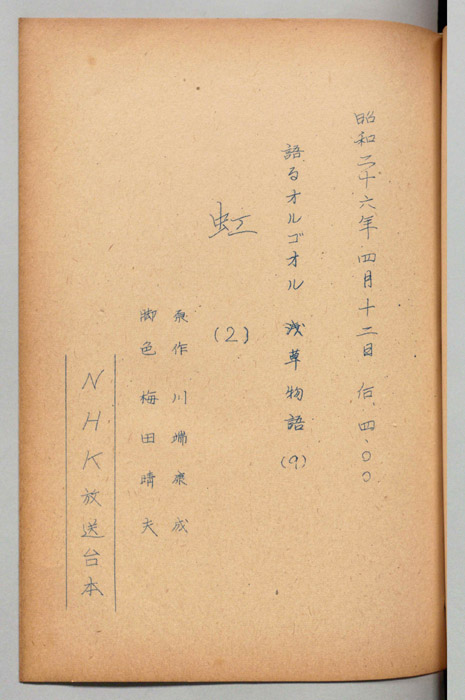 昭和二十六年四月十二日 后、四、〇〇
語るオルゴオル 浅草物語（9）
虹 （2）
原作 川端康成
脚色 梅田晴夫
NHK放送台本